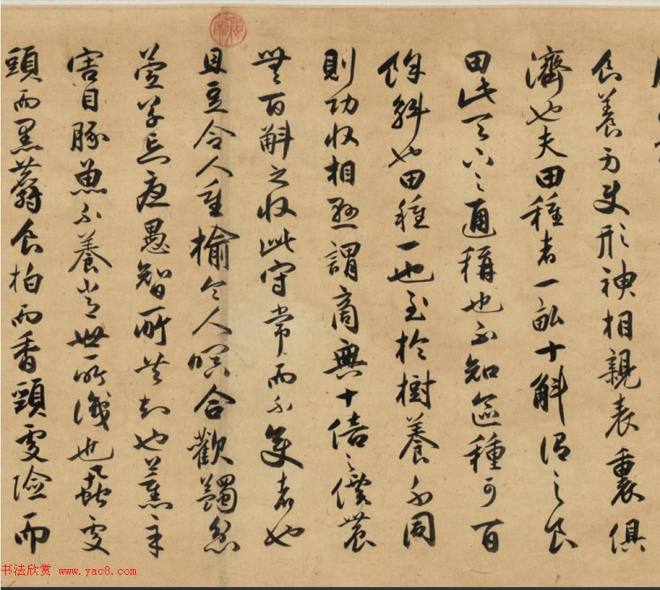 食養身使形神相親表裏俱
濟也夫田種者一畝十斛謂之良
田此天下之通稱也不知區種可百
餘斛也田種一也至於樹養不同
則功收相懸謂商無十倍之價農
無百斛之收此守常而不變者也
且豆令人重榆令人暝合歡蠲忿
萱草忘憂愚智所共知也薰辛
害目豚魚不養常世所識也蝨處
頭而黑麝食柏而香頸處險而
书法欣赏 www.yac8.com